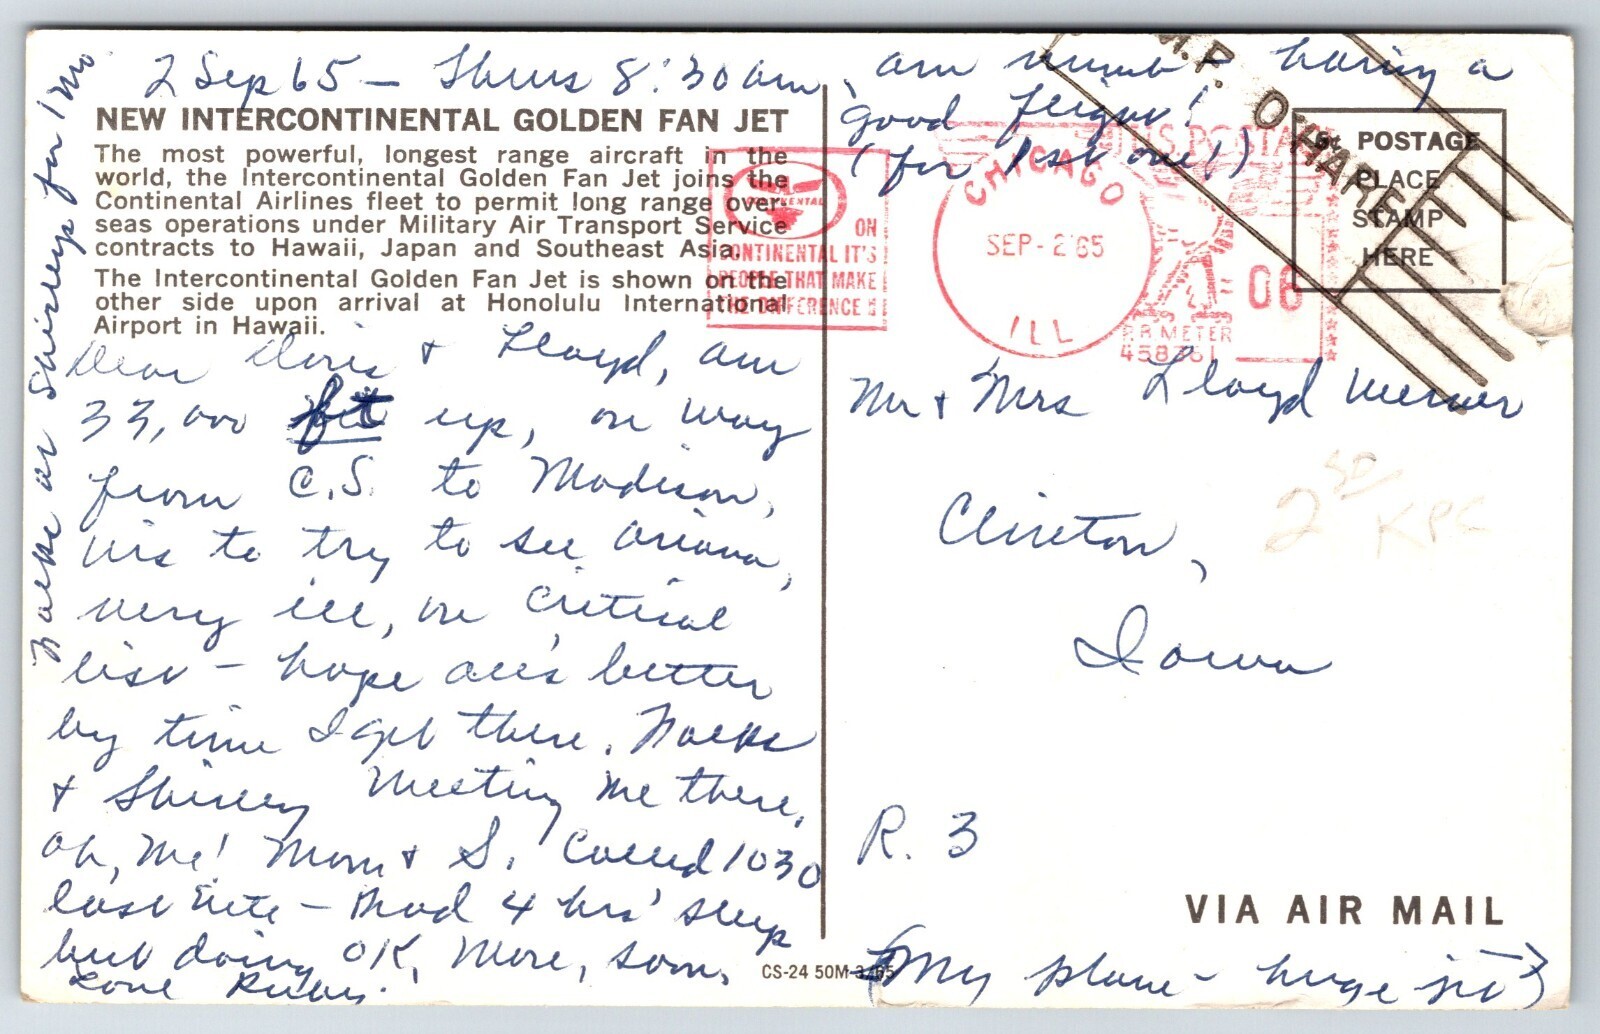 2 Sep 65 – Thurs 8:30 am
NEW INTERCONTINENTAL GOLDEN FAN JET
The most powerful, longest range aircraft in the
world, the Intercontinental Golden Fan Jet joins the
Continental Airlines fleet to permit long range over-
seas operations under Military Air Transport Service
contracts to Hawaii, Japan and Southeast Asia.
The Intercontinental Golden Fan Jet is shown on the
other side upon arrival at Honolulu International
Airport in Hawaii.
Dear Doris & Lloyd, am
33,000 ft up, on way
from C.S. to Madison,
Wis to try to see
very ill, on critical
list – hope all's better
by time I get there.
& Shirley meeting me there.
Oh, me! Mom & S. called 1030
last nite – had 4 hrs' sleep
but doing OK. More, soon.
Love
at Shirley's for 1 mo.
am numb – having a
good
(for 1st one!)
CONTINENTAL
ON
CONTINENTAL IT'S
PEOPLE THAT MAKE
THE DIFFERENCE
CHICAGO
SEP-2'65
ILL
U.S. POSTAGE
06
P.B. METER
458761
A.M.F. O'HARE
6¢ POSTAGE
PLACE
STAMP
HERE
Mr & Mrs Lloyd
Clinton,
Iowa
R. 3
2 50
KPC
VIA AIR MAIL
CS-24 50M 3/65
(My plane – huge jet)